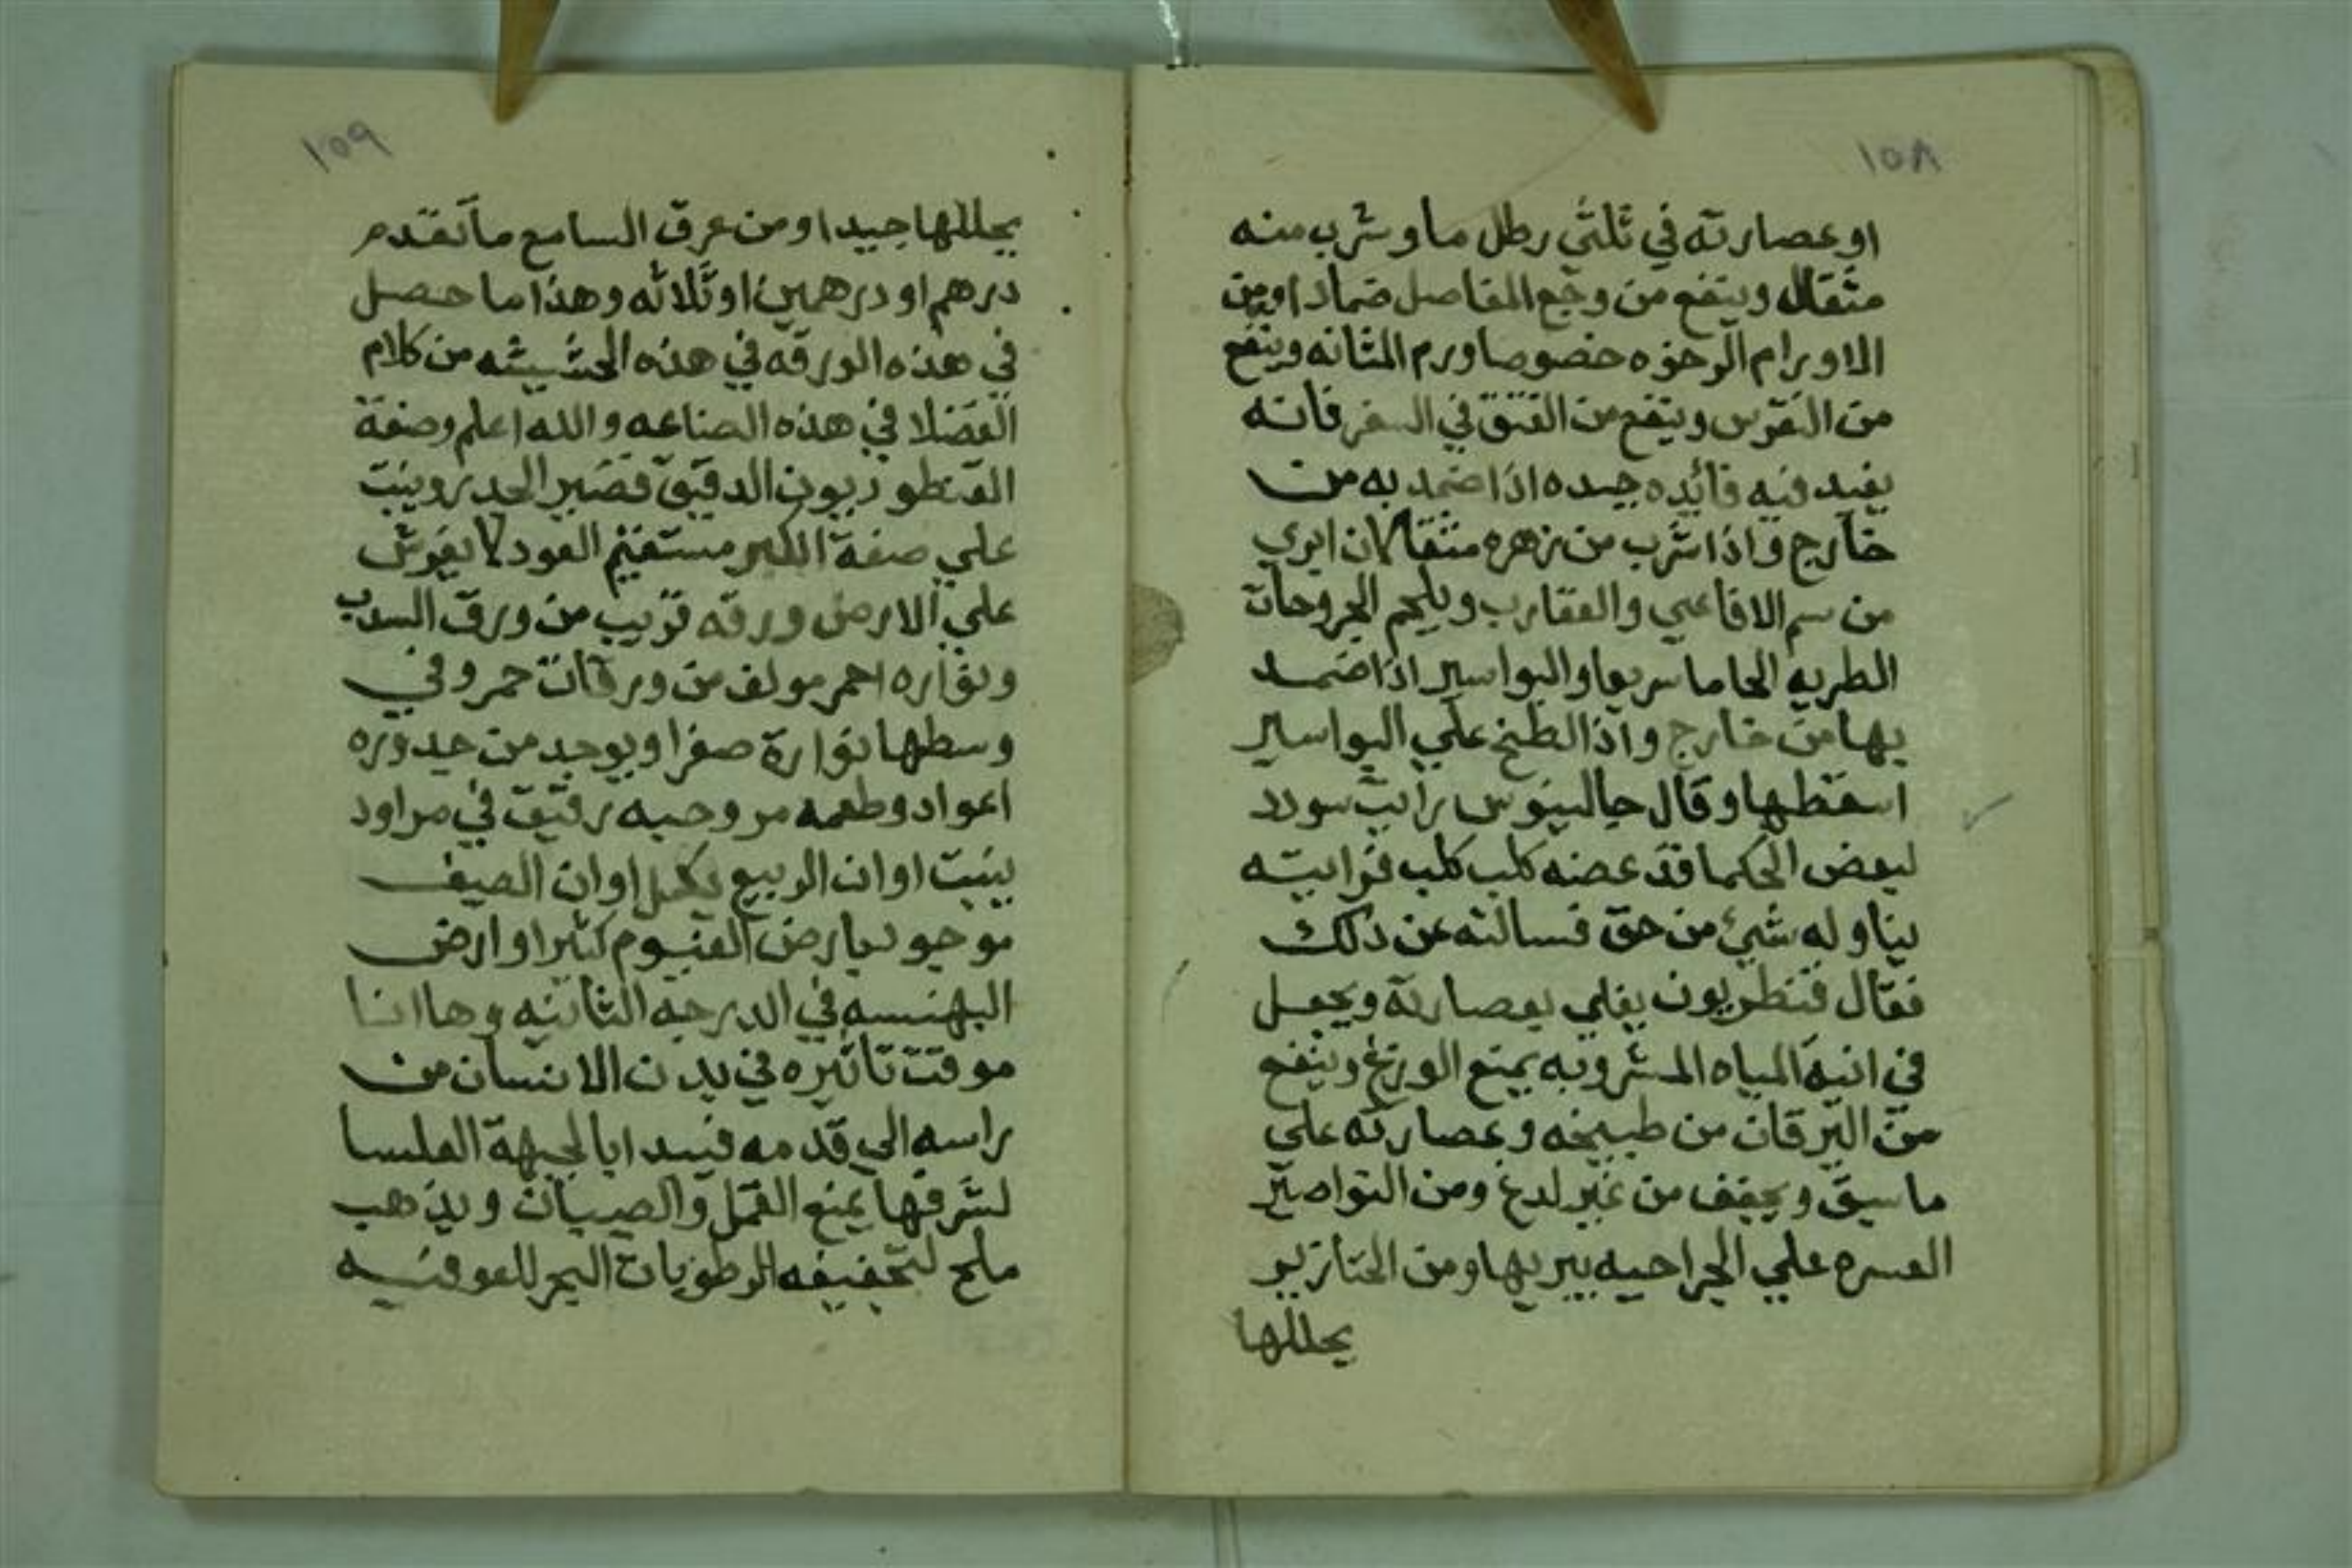 ١٥٨
او عصارته في ثلثي رطل ما وشرب منه
مثقال وينفع من وجع المفاصل ضمادا ومن
الاورام الرخوه خصوصا ورم المثانه وينفع
من النقرس وينفع من الفتق في السفر فانه
يفيد فيه فائده جيده اذا ضمد به من
خارج واذا شرب من زهره مثقالان ابري
من سم الافاعي والعقارب ويلحم الجروحات
الطريه الحاما سريعا والبواسير اذا ضمد
بها من خارج واذا لطخ علي البواسير
اسقطها وقال جالينوس رايت سودد
لبعض الحكما قد عضه كلب كلب فرايته
يناوله شيئ من حق فسالته عن ذلك
فقال قنطريون يغلي بعصارته ويجعل
في انية المياه المشروبه يمنع الوزغ وينفع
من اليرقان من طبيخه وعصارته علي
ما سبق ويجفف من غير لدغ ومن النواصير
العسره علي الجراحيه يبريها ومن الخنازير
يحللها
١٥٩
يحللها جيدا ومن عرق السامع ما تقدم
درهم او درهمين او ثلاثه وهذا ما حصل
في هذه الورقه في هذه الحشيشه من كلام
الفضلا في هذه الصناعه والله اعلم وصفة
القنطوريون الدقيق قصير الجدر وينبت
علي صفة الكبر مستقيم العود لا يفرش
علي الارض ورقه قريب من ورق السدب
ونواره احمر مولف من ورقات حمر وفي
وسطها نوارة صفرا ويوجد من جدوره
اعواد وطعمه مر وحبه رقيق في مراود
ينبت اوان الربيع يكمل اوان الصيف
موجود بارض الفيوم كثيرا وارض
البهنسه في الدرجه الثانيه وها انا
موقت تاثيره في بدن الانسان من
راسه الي قدمه فنبدا بالجبهة الملسا
لشرفها يمنع القمل والصيبان ويذهب
ملح لتجفيفه الرطوبات البحر للعوفنيه